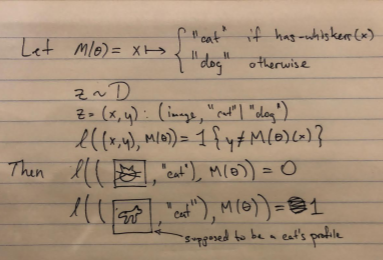 Let M(θ) = x ↦ { "cat" if has-whiskers(x)
"dog" otherwise
z ~ D
z = (x, y) : (image, "cat" | "dog")
l((x,y), M(θ)) = 1{y ≠ M(θ)(x)}
Then l(( , "cat"), M(θ)) = 0
l(( , "cat"), M(θ)) = 1
supposed to be a cat's profile